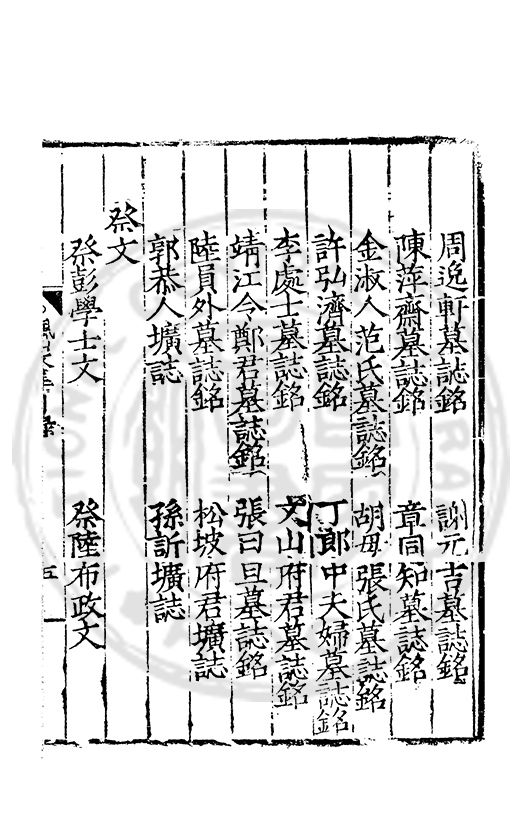 周逸軒墓誌銘　謝元吉墓誌銘
陳萍齋墓誌銘　章同知墓誌銘
金淑人范氏墓誌銘　胡母張氏墓誌銘
許弘濟墓誌銘　丁郎中夫婦墓誌銘
李處士墓誌銘　文山府君墓誌銘
靖江令鄭君墓誌銘　張曰旦墓誌銘
陸員外墓誌銘　松坡府君壙誌
郭恭人壙誌　孫訢壙誌
祭文
祭彭學士文　祭陸布政文
五